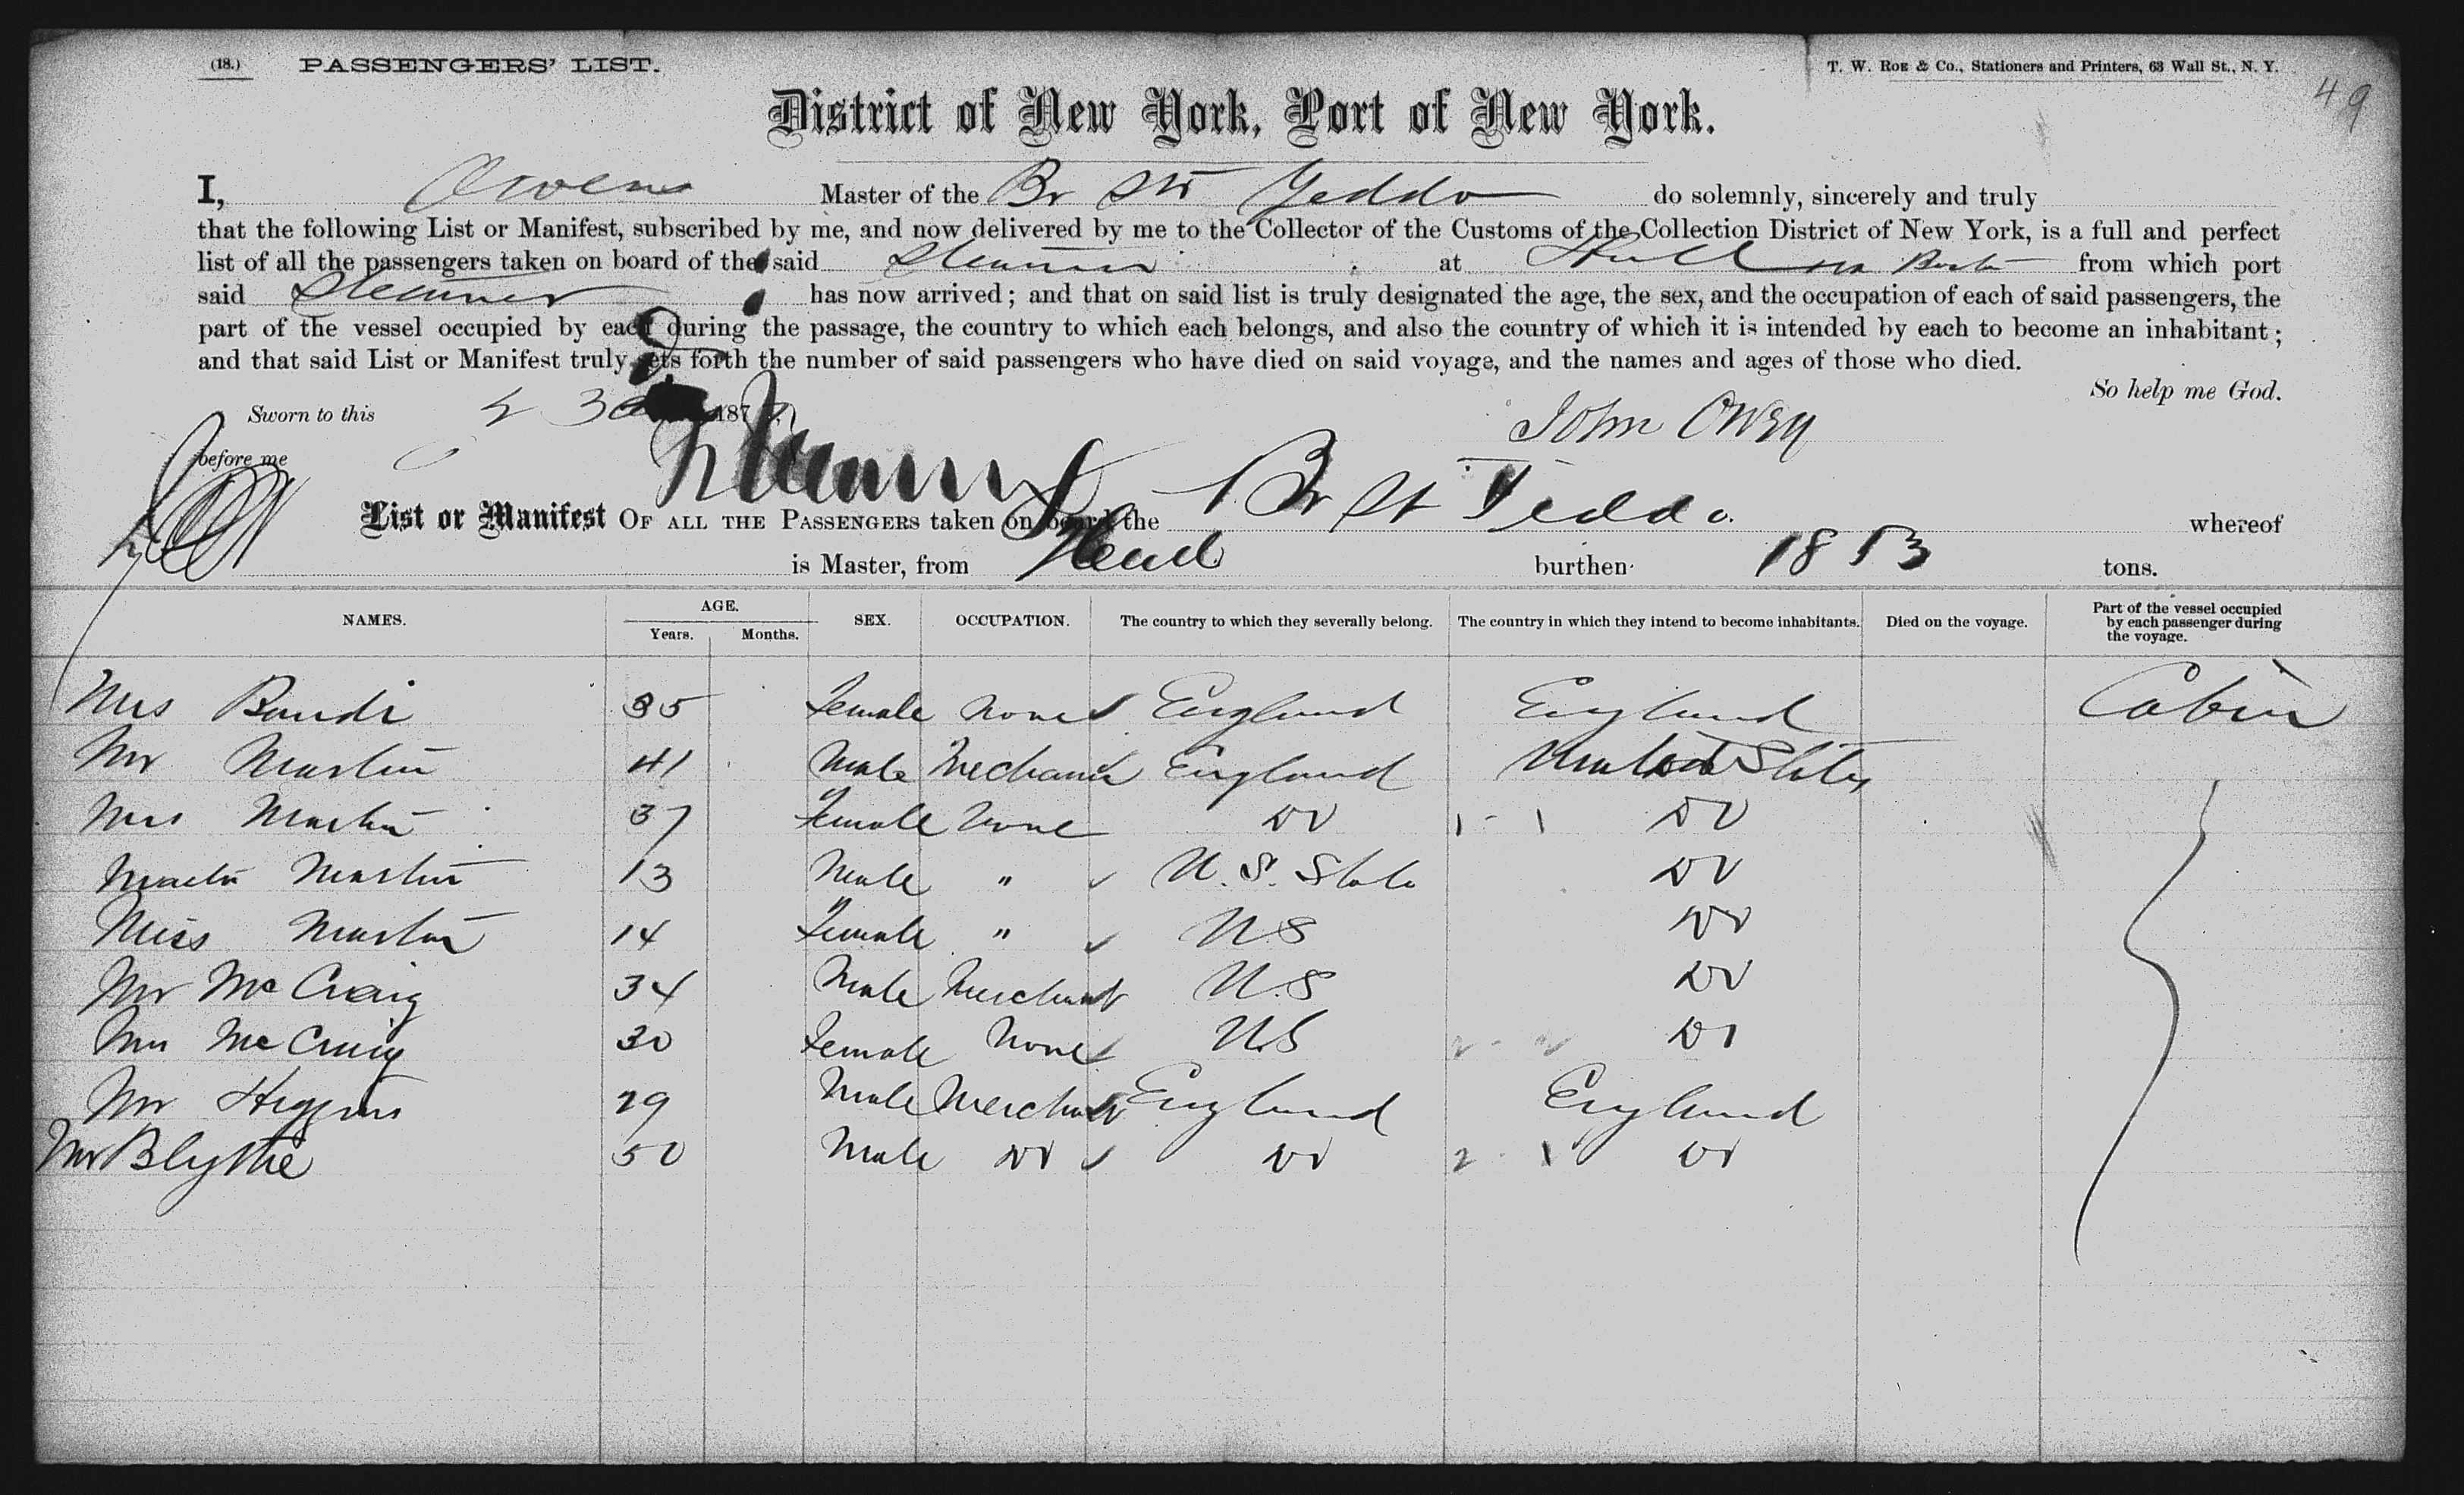 (18.) PASSENGERS' LIST. T. W. ROE & Co., Stationers and Printers, 63 Wall St., N. Y.
49
District of New York, Port of New York.
I, Owens Master of the Br Str Yeddo do solemnly, sincerely and truly
that the following List or Manifest, subscribed by me, and now delivered by me to the Collector of the Customs of the Collection District of New York, is a full and perfect
list of all the passengers taken on board of the said Steamer at Hull via Boston from which port
said Steamer has now arrived; and that on said list is truly designated the age, the sex, and the occupation of each of said passengers, the
part of the vessel occupied by each during the passage, the country to which each belongs, and also the country of which it is intended by each to become an inhabitant;
and that said List or Manifest truly sets forth the number of said passengers who have died on said voyage, and the names and ages of those who died.
So help me God.
Sworn to this 187
John Owen
before me
List or Manifest OF ALL THE PASSENGERS taken on board the Br St Yeddo. whereof
is Master, from Hull burthen 1813 tons.
NAMES. AGE. Years. Months. SEX. OCCUPATION. The country to which they severally belong. The country in which they intend to become inhabitants. Died on the voyage. Part of the vessel occupied by each passenger during the voyage.
Mrs 35 Female None England England Cabin
Mr Martin 41 Male Mechanic England United States
Mrs Martin 37 Female None Do 1 - 1 Do
Master Martin 13 Male " U. S. State Do
Miss Martin 14 Female " U S Do
Mr McCraig 34 Male Merchant U. S Do
Mrs McCraig 30 Female None U.S Do
Mr Higgins 29 Male Merchant England England
Mr Blythe 50 Male Do Do 2 - 1 Do